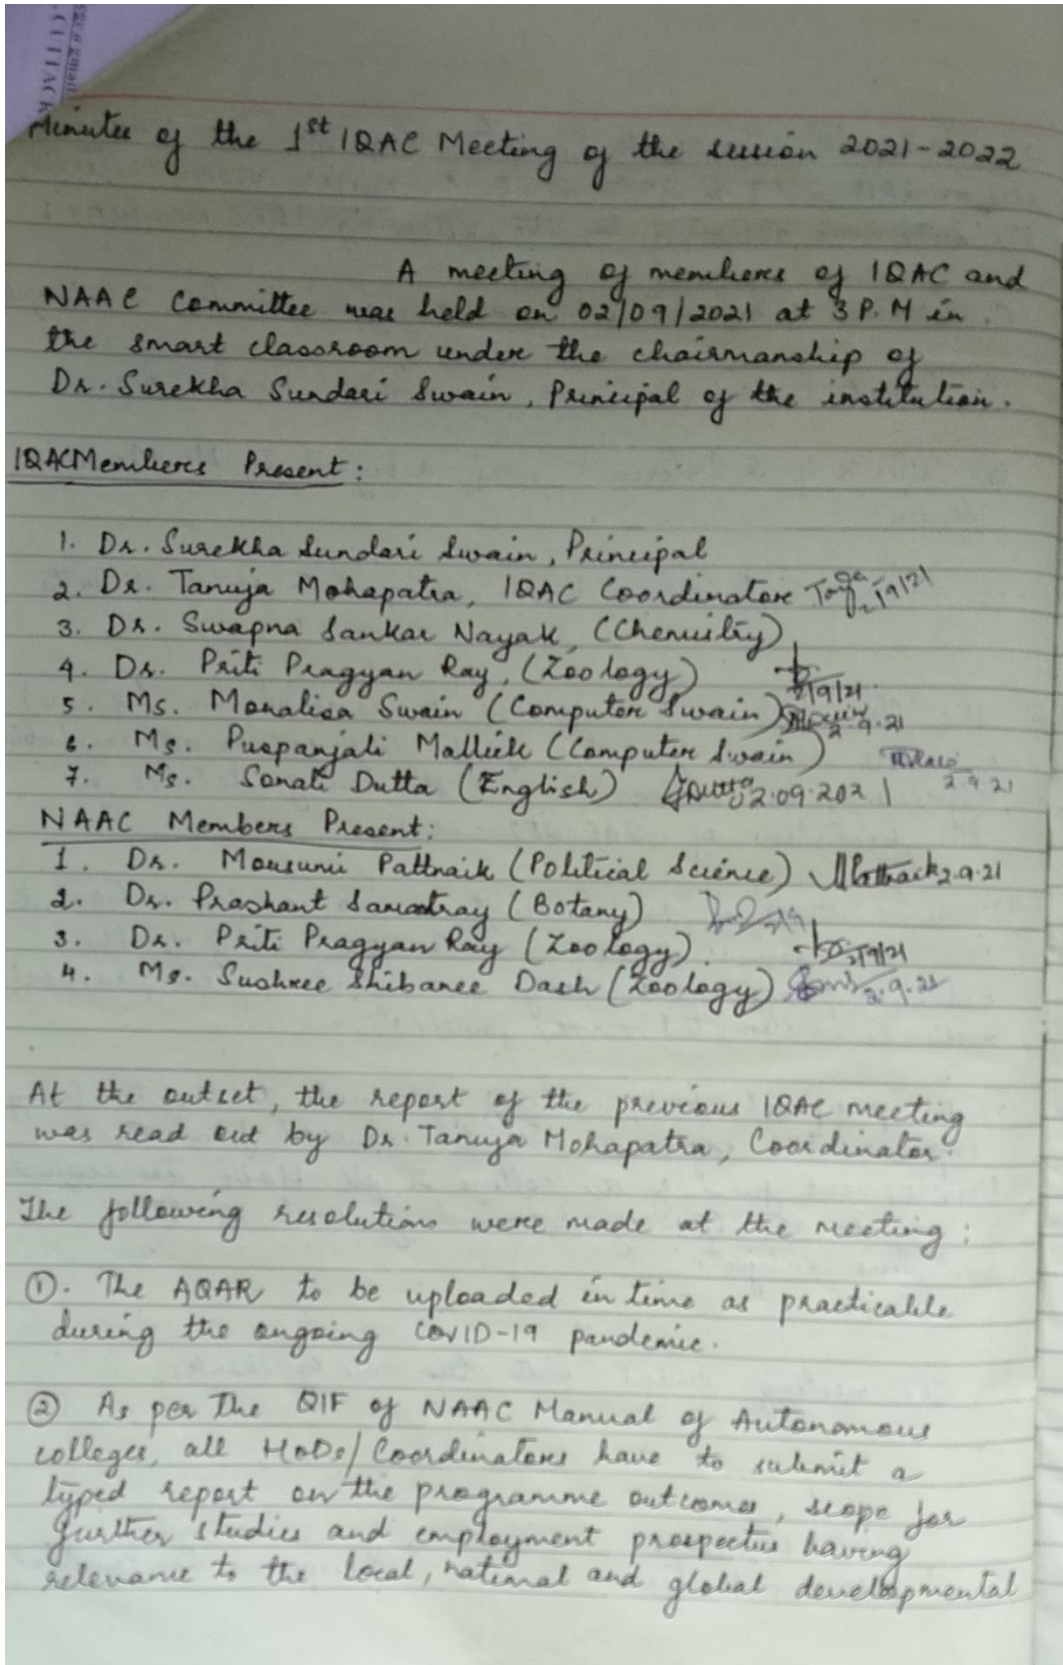 CUTTACK
Minutes of the 1st IQAC Meeting of the session 2021-2022
A meeting of members of IQAC and
NAAC Committee was held on 02/09/2021 at 3 P.M in
the smart classroom under the chairmanship of
Dr. Surekha Sundari Swain, Principal of the institution.
IQAC Members Present:
1. Dr. Surekha Sundari Swain, Principal
2. Dr. Tanuja Mohapatra, IQAC Coordinator 2/9/21
3. Dr. Swapna Sankar Nayak, (Chemistry)
4. Dr. Priti Pragyan Ray, (Zoology) 2/9/21
5. Ms. Monalisa Swain (Computer Swain) 2.9.21
6. Ms. Puspanjali Mallick (Computer Swain) 2.9.21
7. Ms. Sonali Dutta (English) SDutta 02.09.2021
NAAC Members Present:
1. Dr. Mousumi Pattnaik (Political Science) MPattnaik 2.9.21
2. Dr. Prashant Samantray (Botany)
3. Dr. Priti Pragyan Ray (Zoology). 2/9/21
4. Ms. Sushree Shibanee Dash (Zoology) 2.9.21
At the outset, the report of the previous IQAC meeting
was read out by Dr. Tanuja Mohapatra, Coordinator.
The following resolutions were made at the meeting:
①. The AQAR to be uploaded in time as practicable
during the ongoing COVID-19 pandemic.
② As per The QIF of NAAC Manual of Autonomous
colleges, all HoDs/Coordinators have to submit a
typed report on the programme outcomes, scope for
further studies and employment prospectus having
relevance to the local, national and global developmental